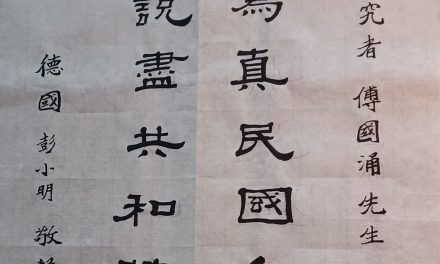 究者 傅國涌 先生
為真民國
說盡共和
德國 彭小明 敬